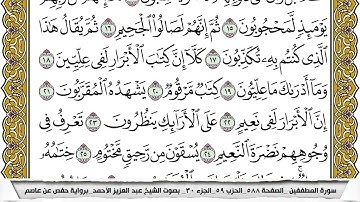 يَوْمَئِذٍ لَّمَحْجُوبُونَ ١٥ ثُمَّ إِنَّهُمْ لَصَالُوا۟ ٱلْجَحِيمِ ١٦ ثُمَّ يُقَالُ هَٰذَا
ٱلَّذِى كُنتُم بِهِۦ تُكَذِّبُونَ ١٧ كَلَّآ إِنَّ كِتَٰبَ ٱلْأَبْرَارِ لَفِى عِلِّيِّينَ ١٨
وَمَآ أَدْرَىٰكَ مَا عِلِّيُّونَ ١٩ كِتَٰبٌ مَّرْقُومٌ ٢٠ يَشْهَدُهُ ٱلْمُقَرَّبُونَ ٢١
إِنَّ ٱلْأَبْرَارَ لَفِى نَعِيمٍ ٢٢ عَلَى ٱلْأَرَآئِكِ يَنظُرُونَ ٢٣ تَعْرِفُ فِى
وُجُوهِهِمْ نَضْرَةَ ٱلنَّعِيمِ ٢٤ يُسْقَوْنَ مِن رَّحِيقٍ مَّخْتُومٍ ٢٥ خِتَٰمُهُۥ
سورة المطففين _ الصفحة ٥٨٨_ الحزب ٥٩_ الجزء ٣٠_ بصوت الشيخ عبد العزيز الأحمد_ برواية حفص عن عاصم